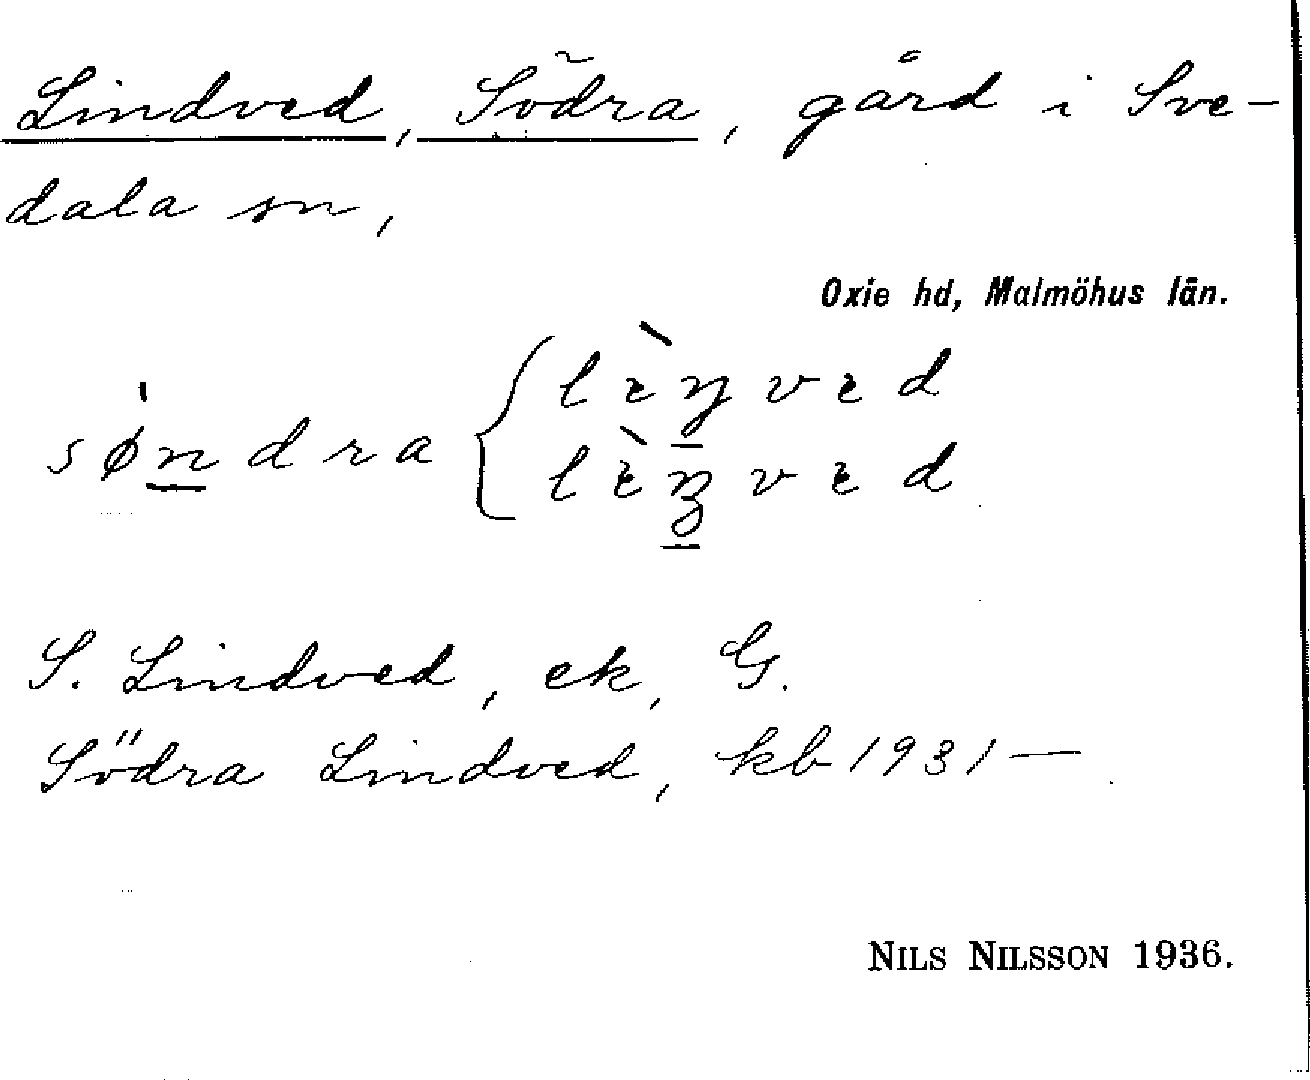 Lindved, Södra, gård i Sve-
dala sn,
Oxie hd, Malmöhus län.
søndra
S. Lindved, ek, G.
Södra Lindved, kb 1931—
NILS NILSSON 1936.